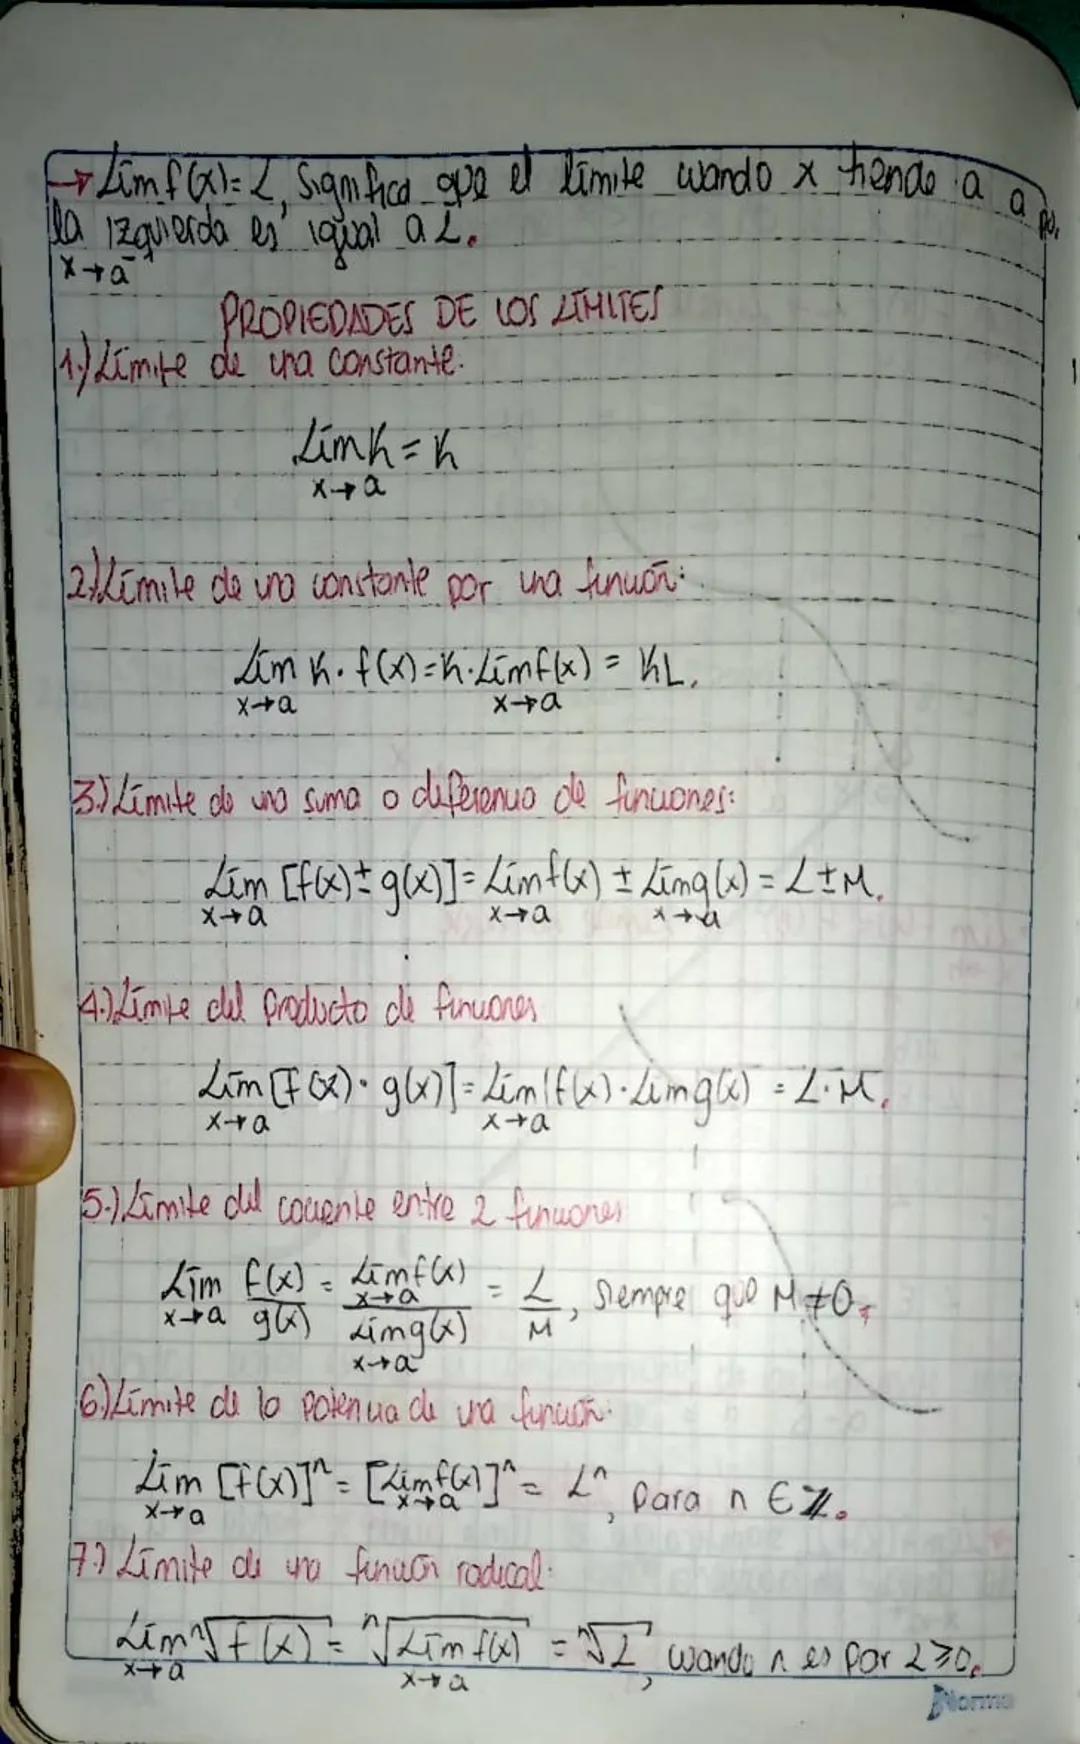 → Lím f(x)= L, Significa que el límite cuando x tiende a a por
la izquierda es igual a L.
x→a⁻
PROPIEDADES DE LOS LÍMITES
1.) Límite de una constante.
Lím K = K
x→a
2.) Límite de una constante por una función:
Lím K · f(x) = K · Lím f(x) = KL.
x→a x→a
3.) Límite de una suma o diferencia de funciones:
Lím [f(x) ± g(x)] = Lím f(x) ± Lím g(x) = L ± M.
x→a x→a x→a
4.) Límite del producto de funciones
Lím [f(x) · g(x)] = Lím f(x) · Lím g(x) = L · M.
x→a x→a
5.) Límite del cociente entre 2 funciones
Lím f(x) = Lím f(x) = L, Siempre que M ≠ 0.
x→a g(x) x→a Lím g(x) M
x→a
6.) Límite de la potencia de una función.
Lím [f(x)]ⁿ = [Lím f(x)]ⁿ = Lⁿ, Para n ∈ ℤ.
x→a x→a
7.) Límite de una función radical.
Lím ⁿ√f(x) = ⁿ√Lím f(x) = ⁿ√L, cuando n es par L ≥ 0.
x→a x→a
Norma